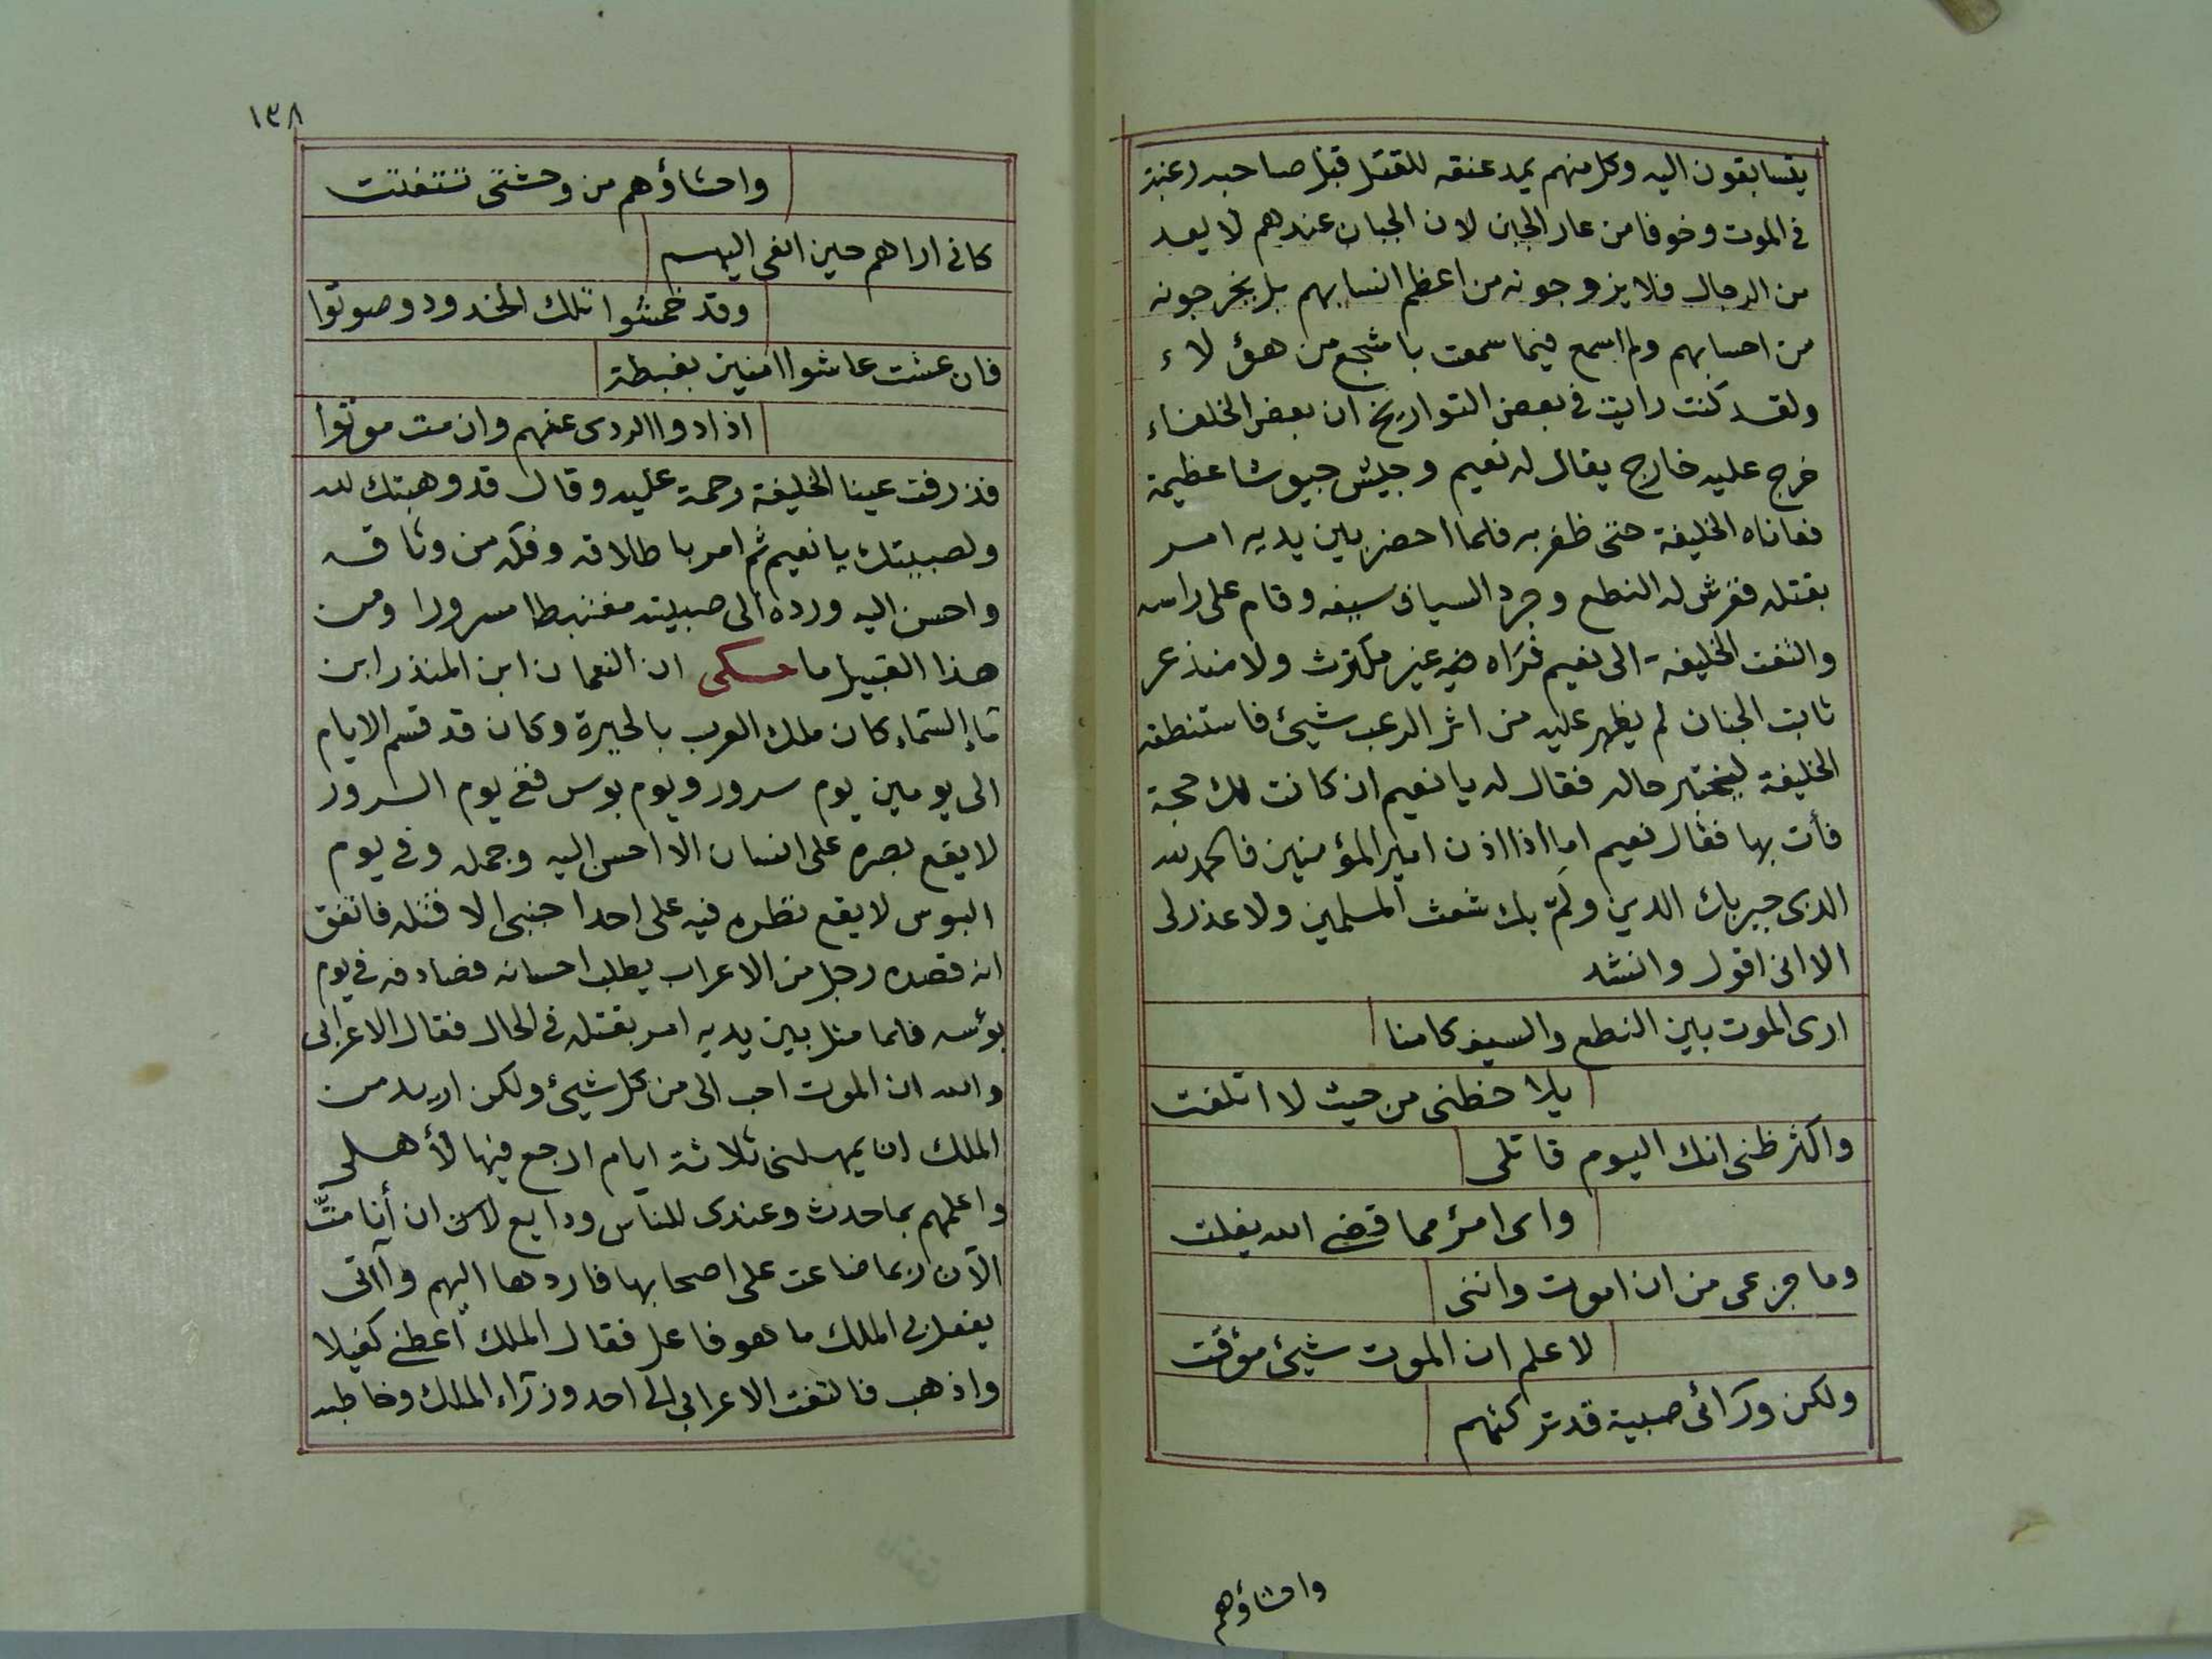 يتسابقون اليه وكل منهم يمد عنقه للقتل قبل صاحبه رغبة
فى الموت وخوفا من عار الجبن لان الجبان عندهم لا يعد
من الرجال فلا يزوجونه من اعظم انسابهم بل يخرجونه
من احسابهم ولم اسمع فيما سمعت باشجع من هؤلاء
ولقد كنت رايت فى بعض التواريخ ان بعض الخلفاء
خرج عليه خارج يقال له نعيم وجيش جيوشا عظيمة
فعاناه الخليفة حتى ظفر به فلما احضر بين يديه امر
بقتله ففرش له النطع وجرد السياف سيفه وقام على راسه
والتفت الخليفة الى نعيم فرآه غير مكترث ولا منذعر
ثابت الجنان لم يظهر عليه من اثر الرعب شيئ فاستنطقه
الخليفة ليختبر حاله فقال له يا نعيم ان كانت لك حجة
فأت بها فقال نعيم اما اذا اذن امير المؤمنين فالحمد لله
الذى جبر بك الدين ولمّ بك شعث المسلمين ولا عذر لى
الا انى اقول وانشد
ارى الموت بين النطع والسيف كامنا
يلاحظنى من حيث لا اتلفت
واكثر ظنى انك اليوم قاتلى
واى امرٔ مما قضى الله يفلت
وما جزعى من ان اموت واننى
لاعلم ان الموت شيئ مؤقت
ولكن ورائى صبية قد تركتهم
واحشاؤهم
١٣٨
واحشاؤهم من وحشتى تتفتت
كانى اراهم حين انعى اليهم
وقد خمشوا تلك الخدود وصوتوا
فان عشت عاشوا امنين بغبطة
اذادوا الردى عنهم وان مت موتوا
فذرفت عينا الخليفة رحمة عليه وقال قد وهبتك لله
ولصبيتك يا نعيم ثم امر باطلاقه وفكه من وثاقه
واحسن اليه ورده الى صبيته مغتبطا مسرورا ومن
هذا القبيل ما حكى ان النعمان ابن المنذر ابن
ماء السماء كان ملك العرب بالحيرة وكان قد قسم الايام
الى يومين يوم سرور ويوم بوس ففى يوم السرور
لا يقع بصره على انسان الا احسن اليه وجمله وفى يوم
البوس لا يقع نظره فيه على احد اجنبى الا قتله فاتفق
انه قصده رجل من الاعراب يطلب احسانه فصادفه فى يوم
بؤسه فلما مثل بين يديه امر بقتله فى الحال فقال الاعرابى
والله ان الموت احب الى من كل شيئ ولكن اريد من
الملك ان يمهلنى ثلاثة ايام ارجع فيها لأهلى
واعلمهم بما حدث وعندى للناس ودايع لان ان أنا متّ
الآن ربما ضاعت على اصحابها فاردها اليهم وآتى
يفعل بى الملك ما هو فاعل فقال الملك أعطنى كفيلا
واذهب فالتفت الاعرابى الى احد وزراء الملك وخاطبه